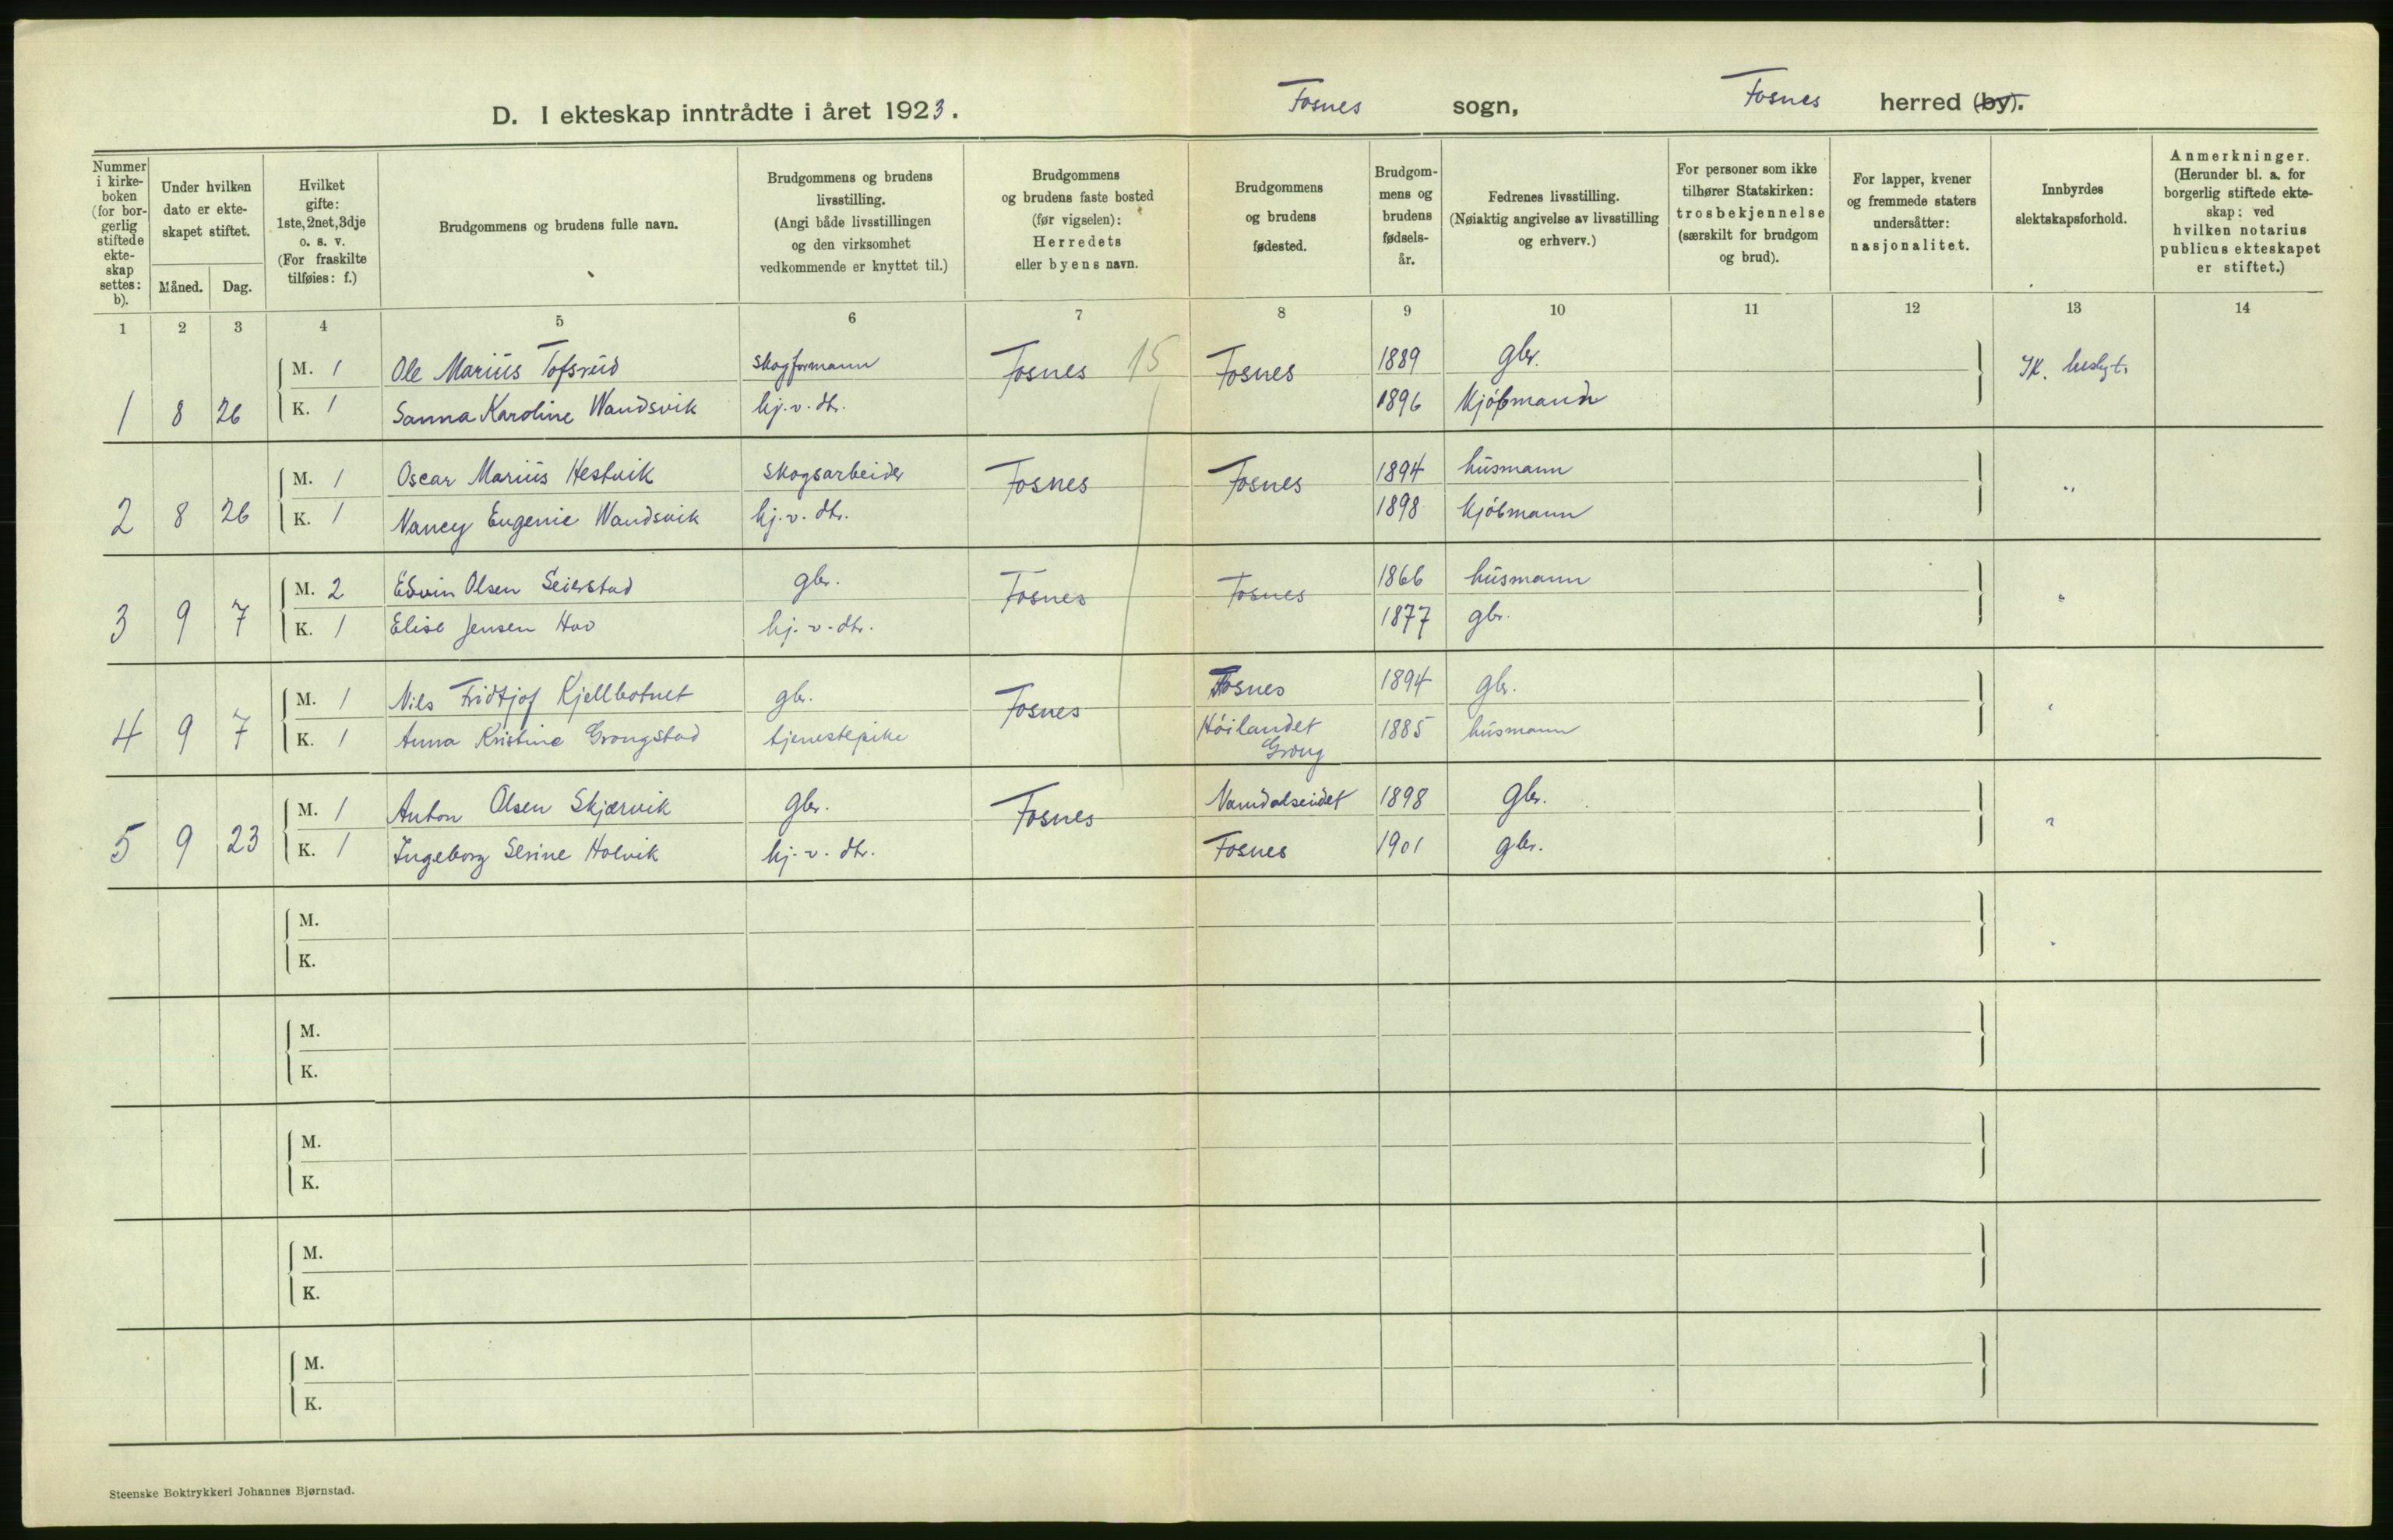 D. I ekteskap inntrådte i året 1923. Fosnes sogn, Fosnes herred (by).
Nummer i kirke- boken (for bor- gerlig stiftede ekte- skap settes: b).
Under hvilken dato er ekte- skapet stiftet.
Måned. Dag.
Hvilket gifte: 1ste, 2net, 3dje o. s. v. (For fraskilte tilføies: f.)
Brudgommens og brudens fulle navn.
Brudgommens og brudens livsstilling. (Angi både livsstillingen og den virksomhet vedkommende er knyttet til.)
Brudgommens og brudens faste bosted (før vigselen): Herredets eller byens navn.
Brudgommens og brudens fødested.
Brudgom- mens og brudens fødsels- år.
Fedrenes livsstilling. (Nøiaktig angivelse av livsstilling og erhverv.)
For personer som ikke tilhører Statskirken: trosbekjennelse (særskilt for brudgom og brud).
For lapper, kvener og fremmede staters undersåtter: nasjonalitet.
Innbyrdes slektskapsforhold.
Anmerkninger. (Herunder bl. a. for borgerlig stiftede ekte- skap: ved hvilken notarius publicus ekteskapet er stiftet.)
1 2 3 4 5 6 7 8 9 10 11 12 13 14
M. 1 Ole Marius Tofsrud skogformann Fosnes 15 Fosnes 1889 gbr. Ik. beslegt.
1 8 26 K. 1 Sanna Karoline Wandsvik hj. v. dtr. 1896 Kjøbmand
M. 1 Oscar Marius Hestvik skogsarbeider Fosnes Fosnes 1894 husmann "
2 8 26 K. 1 Nancy Eugenie Wandsvik hj. v. dtr. 1898 kjøbmann
M. 2 Edvin Olsen Seierstad gbr. Fosnes Fosnes 1866 husmann "
3 9 7 K. 1 Elise Jensen Hov hj. v. dtr. 1877 gbr.
M. 1 Nils Fridtjof Kjellbotnet gbr. Fosnes Fosnes 1894 gbr. "
4 9 7 K. 1 Anna Kristine Grongstad tjenestepike Høilandet Grong 1885 husmann
M. 1 Anton Olsen Skjærvik gbr. Fosnes Namdalseidet 1898 gbr. "
5 9 23 K. 1 Ingeborg Serine Holvik hj. v. dtr. Fosnes 1901 gbr.
M.
K.
M.
K.
M.
K.
M.
K.
M.
K.
Steenske Boktrykkeri Johannes Bjørnstad.